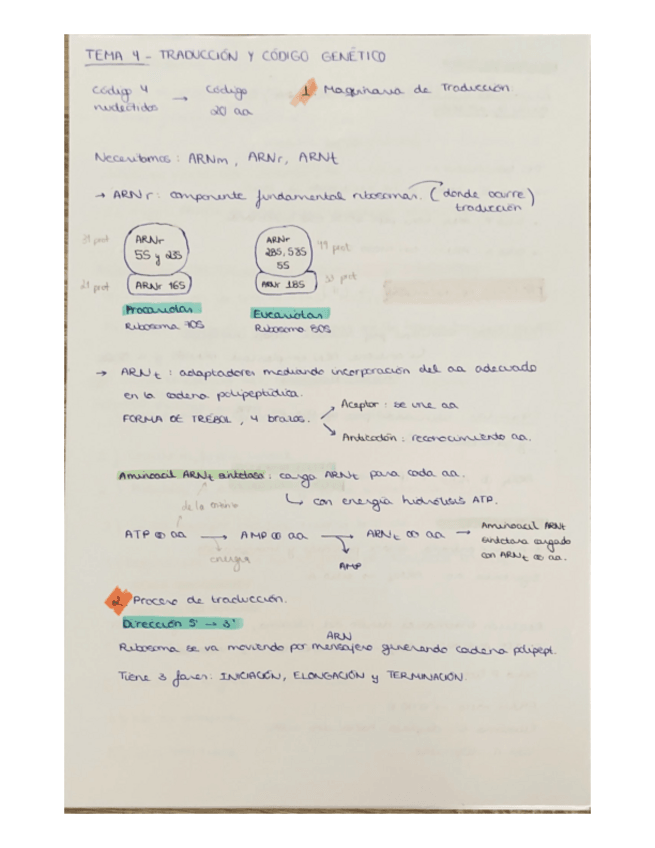 TEMA 4 - TRADUCCIÓN Y CÓDIGO GENÉTICO
Código 4 nucleótidos → Código 20 aa
1 Maquinaria de Traducción.
Necesitamos: ARNm, ARNr, ARNt
→ ARNr: componente fundamental ribosomas. (donde ocurre) traducción
31 prot
ARNr
5S y 23S
21 prot
ARNr 16S
Procariotas
Ribosoma 70S
ARNr
28S, 58S
5S
49 prot
ARNr 18S
33 prot
Eucariotas
Ribosoma 80S
→ ARNt: adaptadores mediando incorporación del aa adecuado
en la cadena polipeptídica.
FORMA DE TRÉBOL, 4 brazos.
Aceptor: se une aa
Anticodón: reconocimiento aa.
Aminoacil ARNt sintetasa: carga ARNt para cada aa.
↳ con energía hidrólisis ATP.
de la misma
ATP ∞ aa → AMP ∞ aa → ARNt ∞ aa → Aminoacil ARNt
sintetasa cargado
con ARNt ∞ aa.
energía
AMP
2 Proceso de traducción.
Dirección 5' → 3'
ARN
Ribosoma se va moviendo por mensajero generando cadena polipept.
Tiene 3 fases: INICIACIÓN, ELONGACIÓN y TERMINACIÓN.